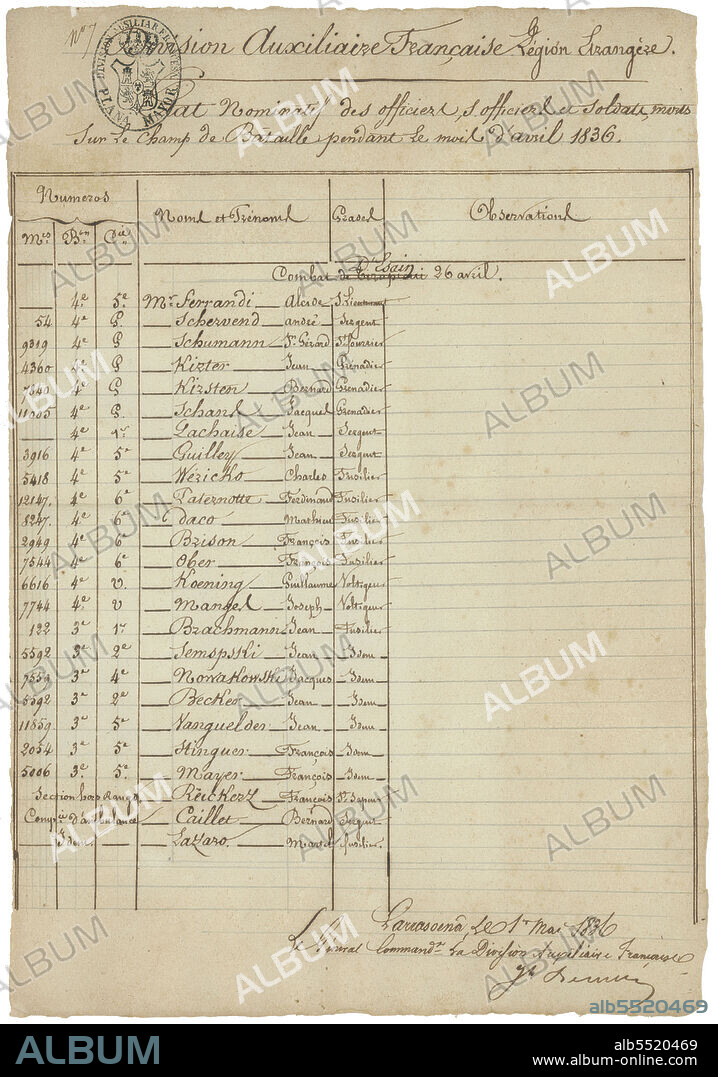 No 7
Division Auxiliaire Française Légion Etrangère.
DIVISION AUSILIAR FRANCESA
PLANA MAYOR
Etat Nominatif des officiers, s. officiers et soldats morts
sur le champ de Bataille, pendant le mois d'avril 1836.
Numeros Noms et Prénoms Grades Observations
Mles Bon Cie
Combat de D'Isain 26 avril.
4e 5e Mr Ferrandi Alcide S. Lieutenant
54 4e G. Schervend andré Sergent
9319 4e G Schumann Gérard St fourrier
4360 4e G Kizter Jean Grenadier
7640 4e G Kirsten Bernard Grenadier
11005 4e G. Schand Jacques Grenadier
4e 1re Lachaise Jean Sergent
3916 4e 5e Guilley Jean Sergent
5418 4e 5e Wezicko Charles Fusilier
12147. 4e 6e Paternotte Ferdinand Fusilier
8247. 4e 6e daco Mathieu Fusilier
2949 4e 6e Brison François Fusilier
7544 4e 6e Ober François Fusilier
6616 4e v. Koening Guillaume Voltigeur
7744 4e v Mangel Joseph Voltigeur
122 3e 1re Brachmann Jean Fusilier
5592 3e 2e Sempski Jean Idem
7559 3e 4e Nowakowski Jacques Idem
5392 3e 2e Becker Jean Idem
11859 3e 5e Vanguelder Jean Idem
2054 3e 5e Hinguer François Idem
5006 3e 5e Mayer François Idem
Section hors Rangs Reickerz François St Sapeur
Compie d'ambulance Caillet Bernard Sergent
Idem Lazaro. Martel fusilier.
Larrasoena, le 1er Mai 1836
Le Général Commandt La Division Auxiliaire Française
alb5520469
ALBUM
alb5520469
www.album-online.com